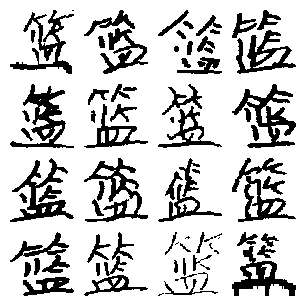 篮篮篮篮
篮篮篮篮
篮篮篮篮
篮篮篮篮